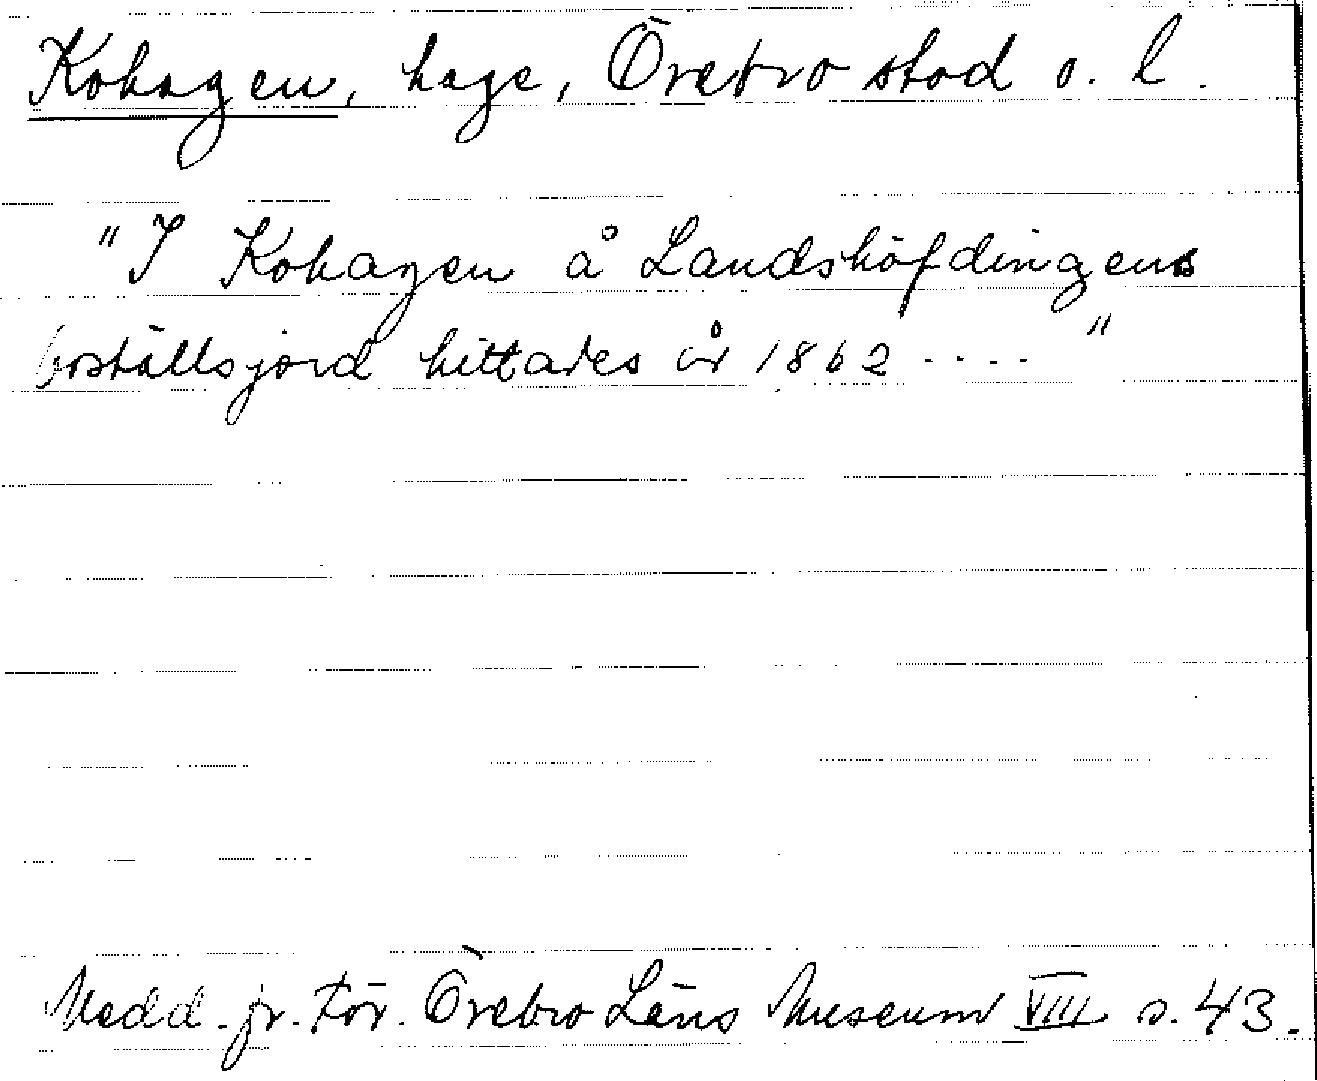 Kohagen, hage, Örebro stad o. l.
"I Kohagen å Landshöfdingens
boställsjord hittades år 1862 ...."
Medd. fr. För. Örebro Läns Museum VIII s. 43.